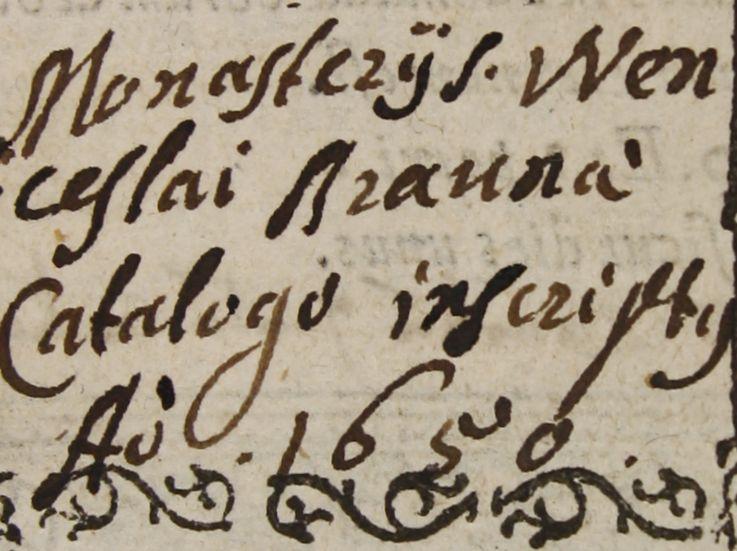 Monasterÿs. Wen
ceslai Braunà
Catalogo inscripty
Aò. 1650.